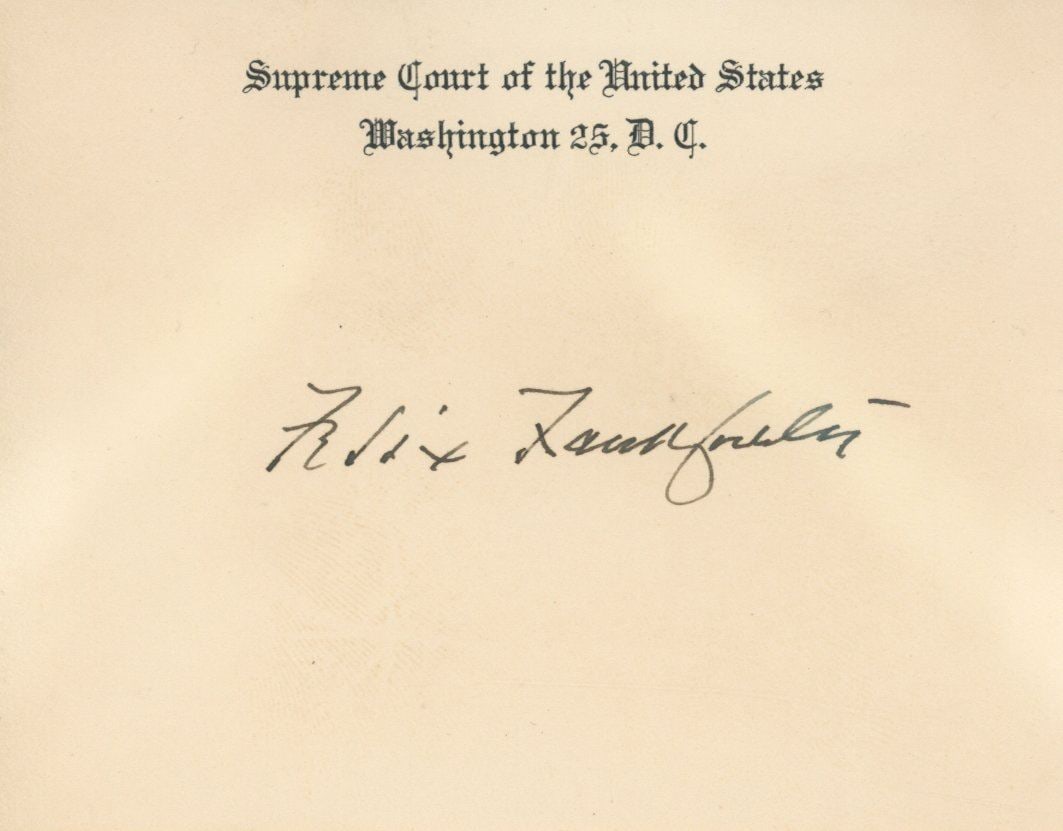 Supreme Court of the United States
Washington 25, D. C.
Felix Frankfurter